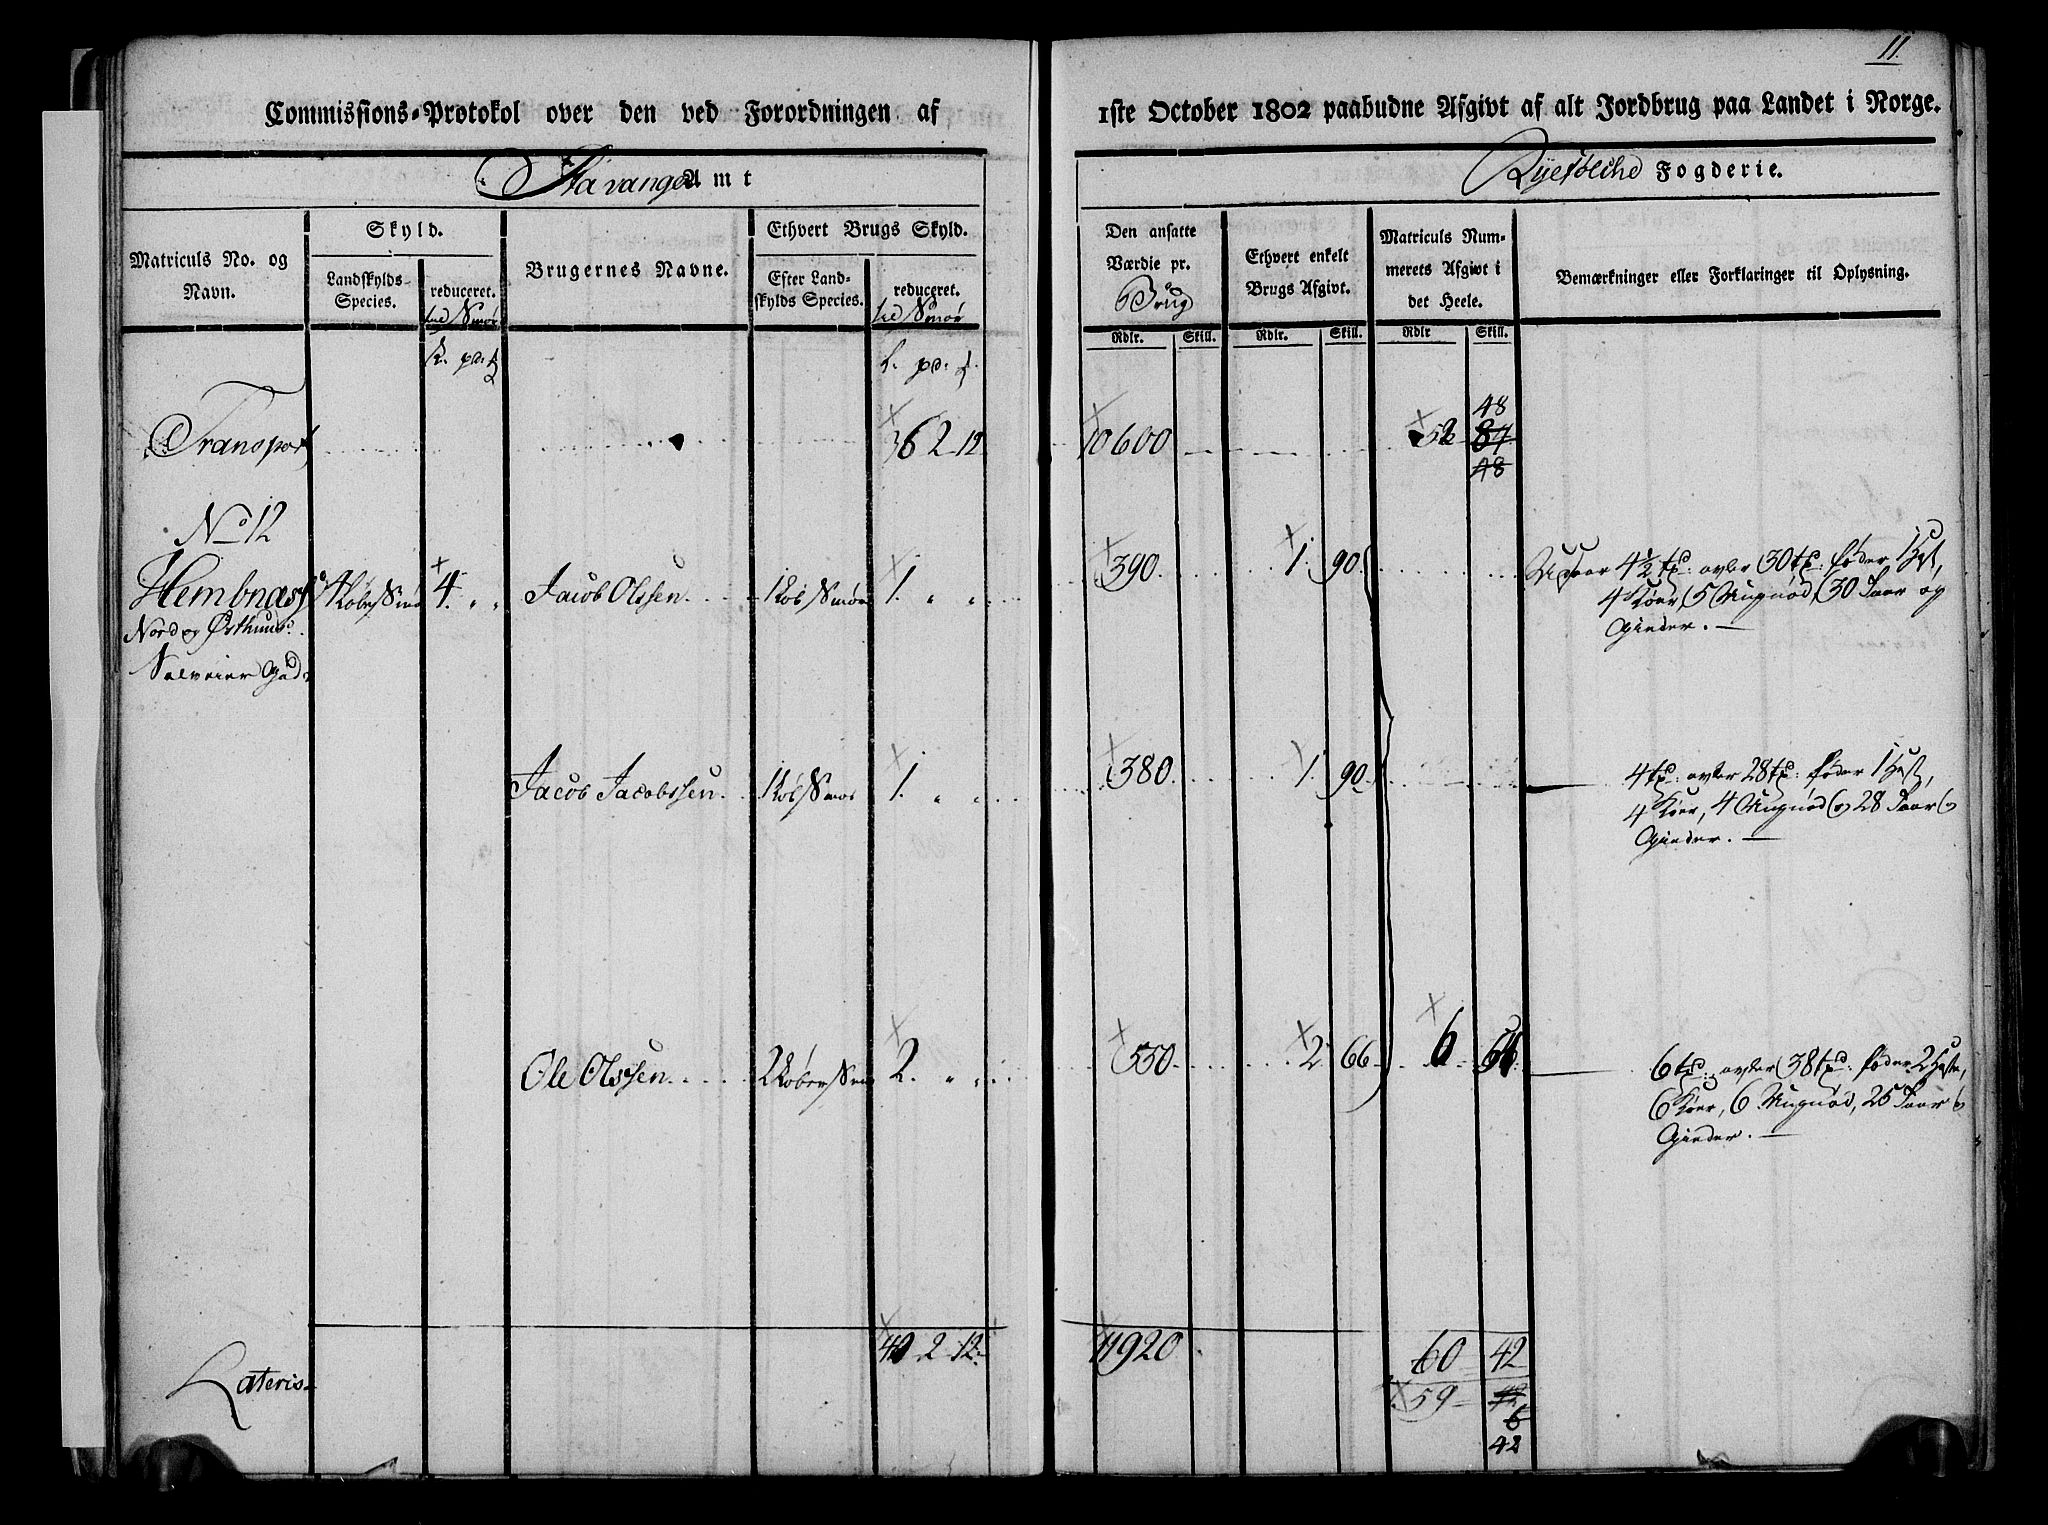 11.
Commissions-Protokol over den ved Forordningen af 1ste October 1802 paabudne Afgivt af alt Jordbrug paa Landet i Norge.
Stavanger Amt
Ryefölche Fogderie.
Matriculs No. og Navn.
Skyld.
Landskylds-Species.
reduceret.
ved Smør
Brugernes Navne.
Ethvert Brugs Skyld.
Efter Landskylds Species.
reduceret.
ved Smør
Den ansatte Værdie pr. Brug
Rdlr. Skill.
Ethvert enkelt Brugs Afgivt.
Rdlr. Skill.
Matriculs Nummerets Afgivt i det Heele.
Rdlr Skill.
Bemærkninger eller Forklaringer til Oplysning.
Transport 36 2 12 10600 52 48
No 12
Hembnæs 4 Kober Smør 4 " " Jacob Olssen 1 Kob Smør 1. " " 390 1. 90 Udsaar 4½ td: avler 30 td: føder 1 Hest,
4 Kiøer, 5 Ungnød, 30 Faar og
Gieder.
Nord og Østhuus
Salveier Gd
Jacob Jacobssen 1 Kob Smør 1. " " 380 1. 90 4 td: avler 28 td: føder 1 Hest,
4 Kiøer, 4 Ungnød og 28 Faar og
Gieder.
Ole Olssen 2 Kober Smør 2. " " 550 2 66 6 6 td: avler 38 td: føder 2 Heste,
6 Kiøer, 6 Ungnød, 25 Faar og
Gieder.
Lateris 40 2 12 11920 60 42
59
6
42